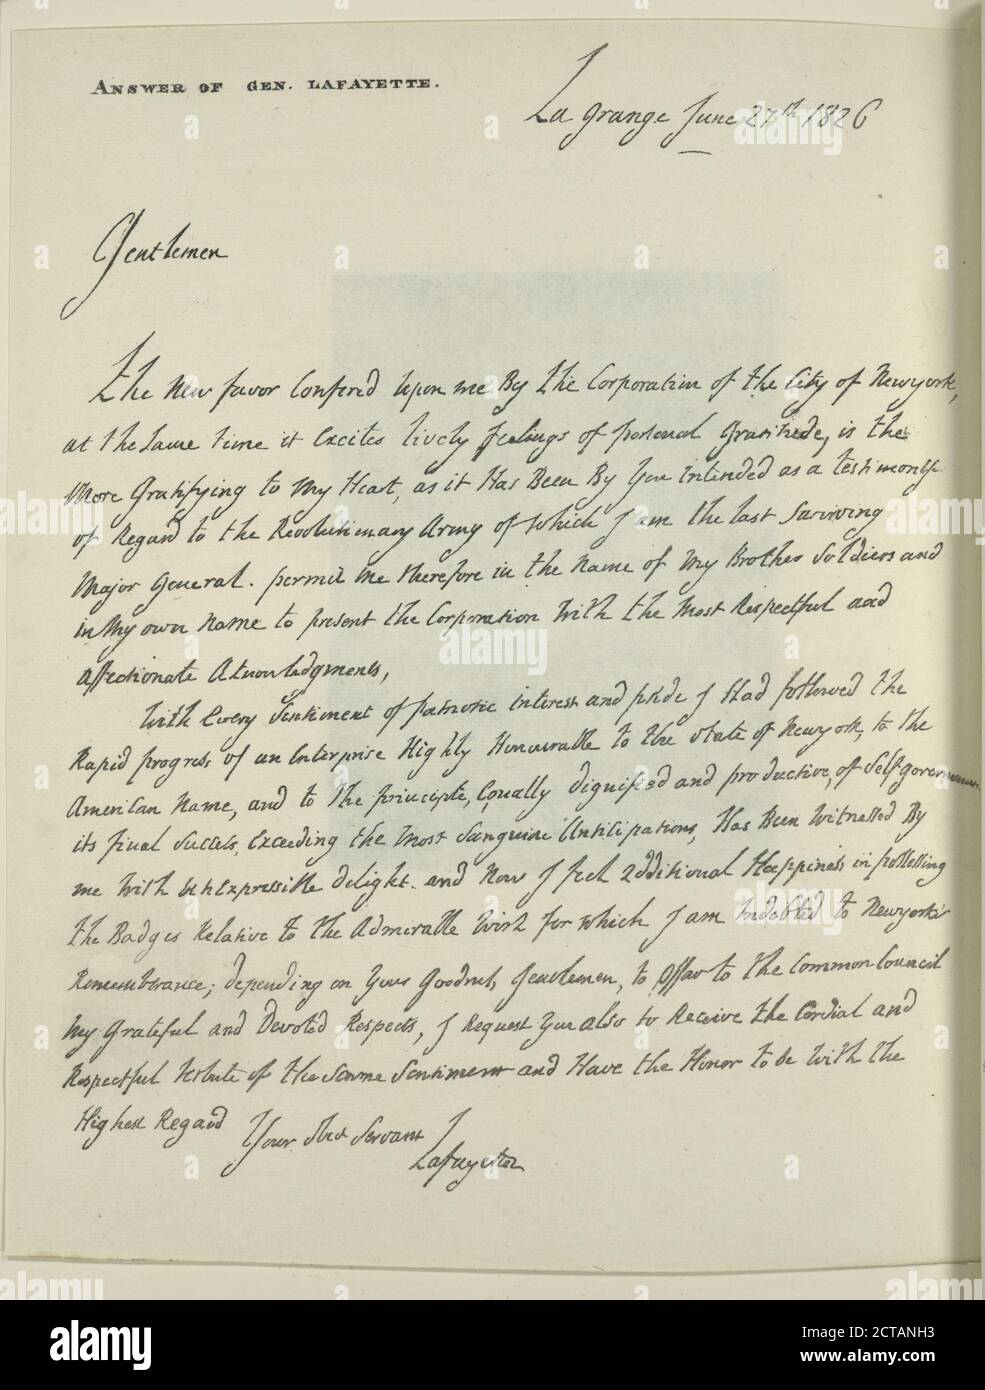 ANSWER OF GEN. LAFAYETTE.
La grange June 27th 1826
Gentlemen
The New favor Confered Upon me By the Corporation of the City of Newyork,
at the Same time it excites lively feelings of personal Gratitude, is the
More Gratifying to My Heart, as it Has Been By You intended as a testimony
of Regard to the Revolutionary Army of which I am the last Surviving
Major General. permit me therefore in the Name of My Brother Soldiers and
in My own Name to present the Corporation With the Most Respectful and
affectionate Aknowledgments,
With Every Sentiment of patriotic interest and pride I Had followed the
Rapid progress of an Enterprise Highly Honourable to the State of Newyork, to the
American Name, and to the principle, Equally dignified and productive, of Self government.
its final Success, Exceeding the Most Sanguine Anticipations, Has Been Witnessed By
me With inexpressible delight. and Now I feel additional Happiness in possessing
the Badges Relative to the Admirable Work for which I am Indebted to Newyork's
Remembrance; depending on Your Goodness, Gentlemen, to Offer to the Common Council
My Grateful and Devoted Respects, I Request You also to Receive the Cordial and
Respectful tribute of the Same Sentiment and Have the Honor to be With the
Highest Regard
Your Obed Servant
Lafayette
alamy
Image ID: 2CTANH3
www.alamy.com